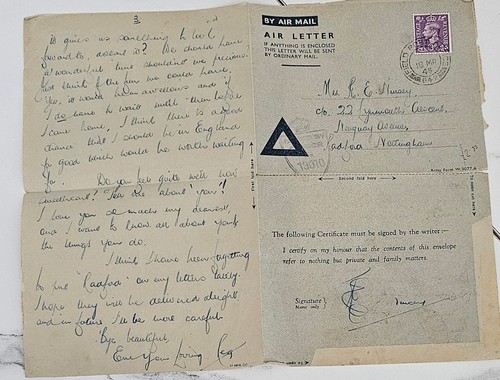 3
it gives us something to look
forward to, doesn't it? We should have
a wonderful time shouldn't we precious?
Just think of the fun we could have.
Yes, it would be marvellous and if
I do have to wait until then before
I come home, I think there is a good
chance that I should be in England
for good which would be worth waiting
for. Do you feel quite well now
sweetheart? Tell me about "you"!
I love you so much my dearest,
and I want to know all about you &
the things you do.
I think I have been forgetting
to put "Radford" on my letters lately.
I hope they will be delivered alright
and in future I'll be more careful
'Bye beautiful,
Ever Your Loving Reg
BY AIR MAIL
AIR LETTER
IF ANYTHING IS ENCLOSED
THIS LETTER WILL BE
SENT BY
ORDINARY MAIL.
Mrs R. E.
c/o. 22 Lynmouth Crescent,
Torquay Avenue,
Radford Nottingham
Army Form W.3077.A
Second fold here
The following Certificate must be signed by the writer:—
I certify on my honour that the contents of this envelope
refer to nothing but private and family matters.
Signature
Name only